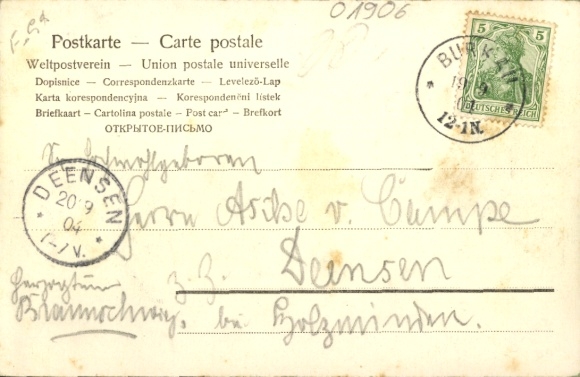 01906
Postkarte — Carte postale
Weltpostverein — Union postale universelle
Dopisnice — Correspondenzkarte — Levelező-Lap
Karta korespondencyjna — Korespondenčni listek
Briefkaart — Cartolina postale — Post card — Brefkort
ОТКРЫТОЕ-ПИСЬМО
5 5
DEUTSCHES REICH
BURKAU
19 9
04
12-1N.
Sr. Hochwohlgeboren
Herrn Asche v. Campe
DEENSEN
20 9
04
7-7V.
z. Z. Deensen
Herzogtum
Braunschweig, bei Holzminden.